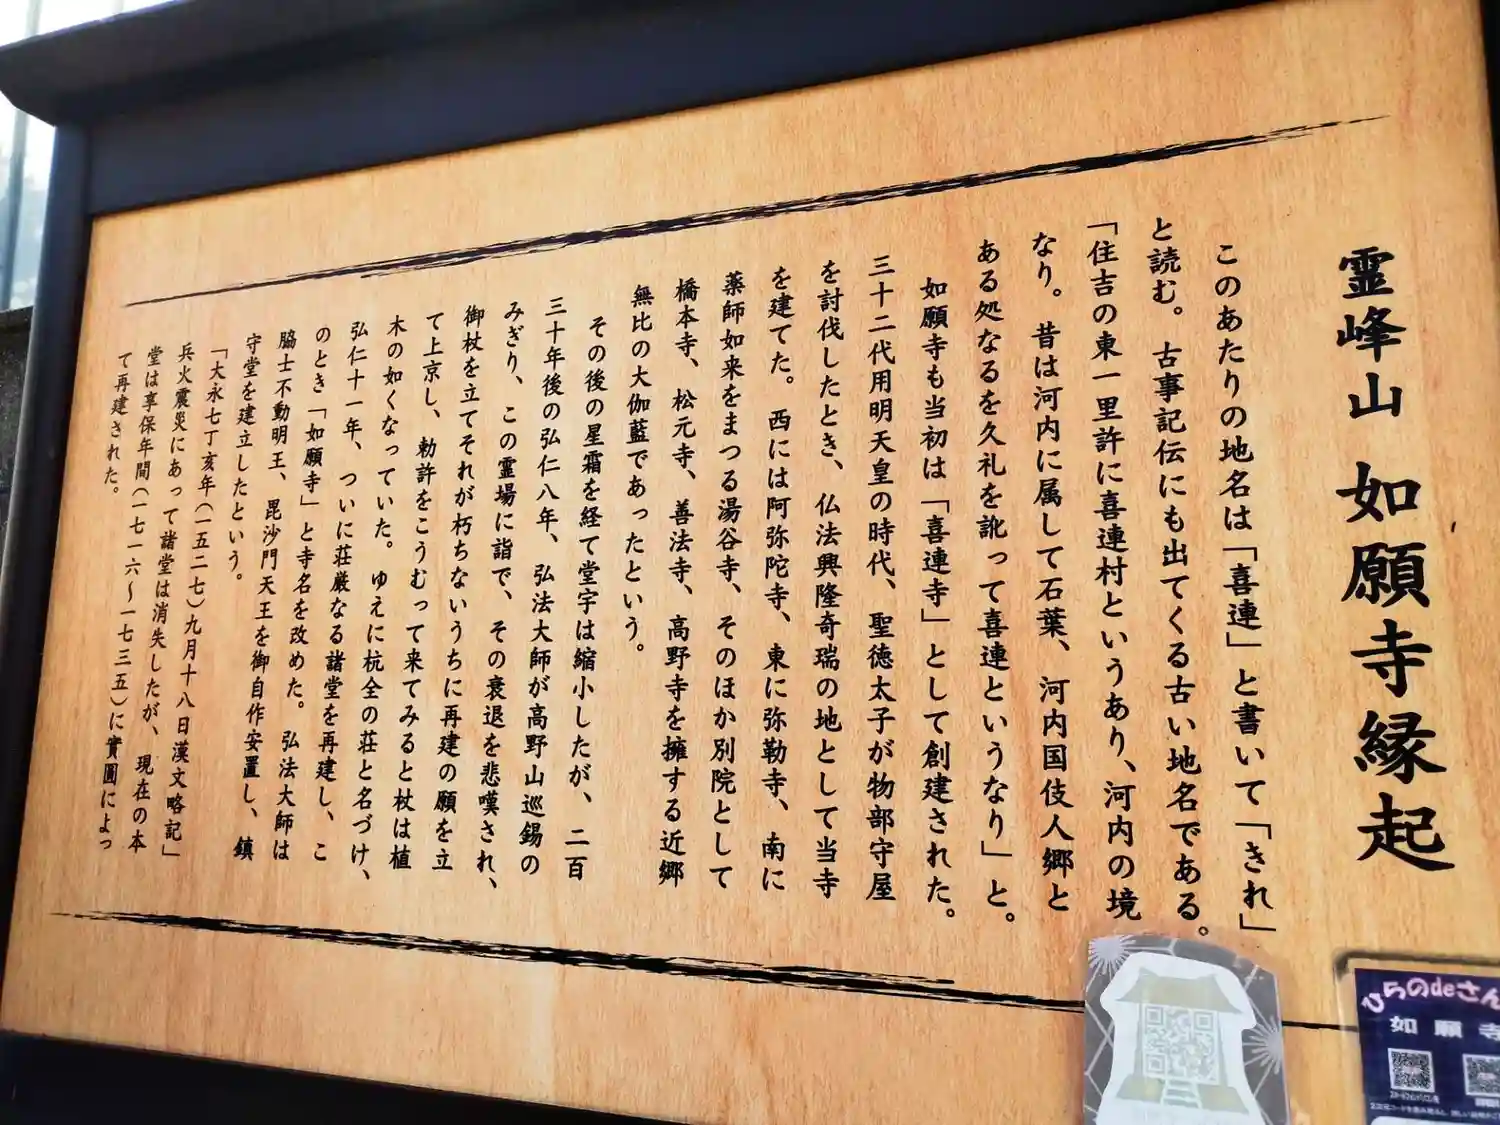 霊峰山 如願寺縁起
このあたりの地名は「喜連」と書いて「きれ」
と読む。古事記伝にも出てくる古い地名である。
「住吉の東一里許に喜連村というあり、河内の境
なり。昔は河内に属して石葉、河内国伎人郷と
ある処なるを久礼を訛って喜連というなり」と。
如願寺も当初は「喜連寺」として創建された。
三十二代用明天皇の時代、聖徳太子が物部守屋
を討伐したとき、仏法興隆奇瑞の地として当寺
を建てた。西には阿弥陀寺、東に弥勒寺、南に
薬師如来をまつる湯谷寺、そのほか別院として
橋本寺、松元寺、善法寺、高野寺を擁する近郷
無比の大伽藍であったという。
その後の星霜を経て堂宇は縮小したが、二百
三十年後の弘仁八年、弘法大師が高野山巡錫の
みぎり、この霊場に詣で、その衰退を悲嘆され、
御杖を立てそれが朽ちないうちに再建の願を立
て上京し、勅許をこうむって来てみると杖は植
木の如くなっていた。ゆえに杭全の荘と名づけ、
弘仁十一年、ついに荘厳なる諸堂を再建し、こ
のとき「如願寺」と寺名を改めた。弘法大師は
脇士不動明王、毘沙門天王を御自作安置し、鎮
守堂を建立したという。
「大永七丁亥年(一五二七)九月十八日漢文略記」
兵火震災にあって諸堂は消失したが、現在の本
堂は享保年間(一七一六～一七三五)に實圓によっ
て再建された。
ひらのdeさん
如願寺